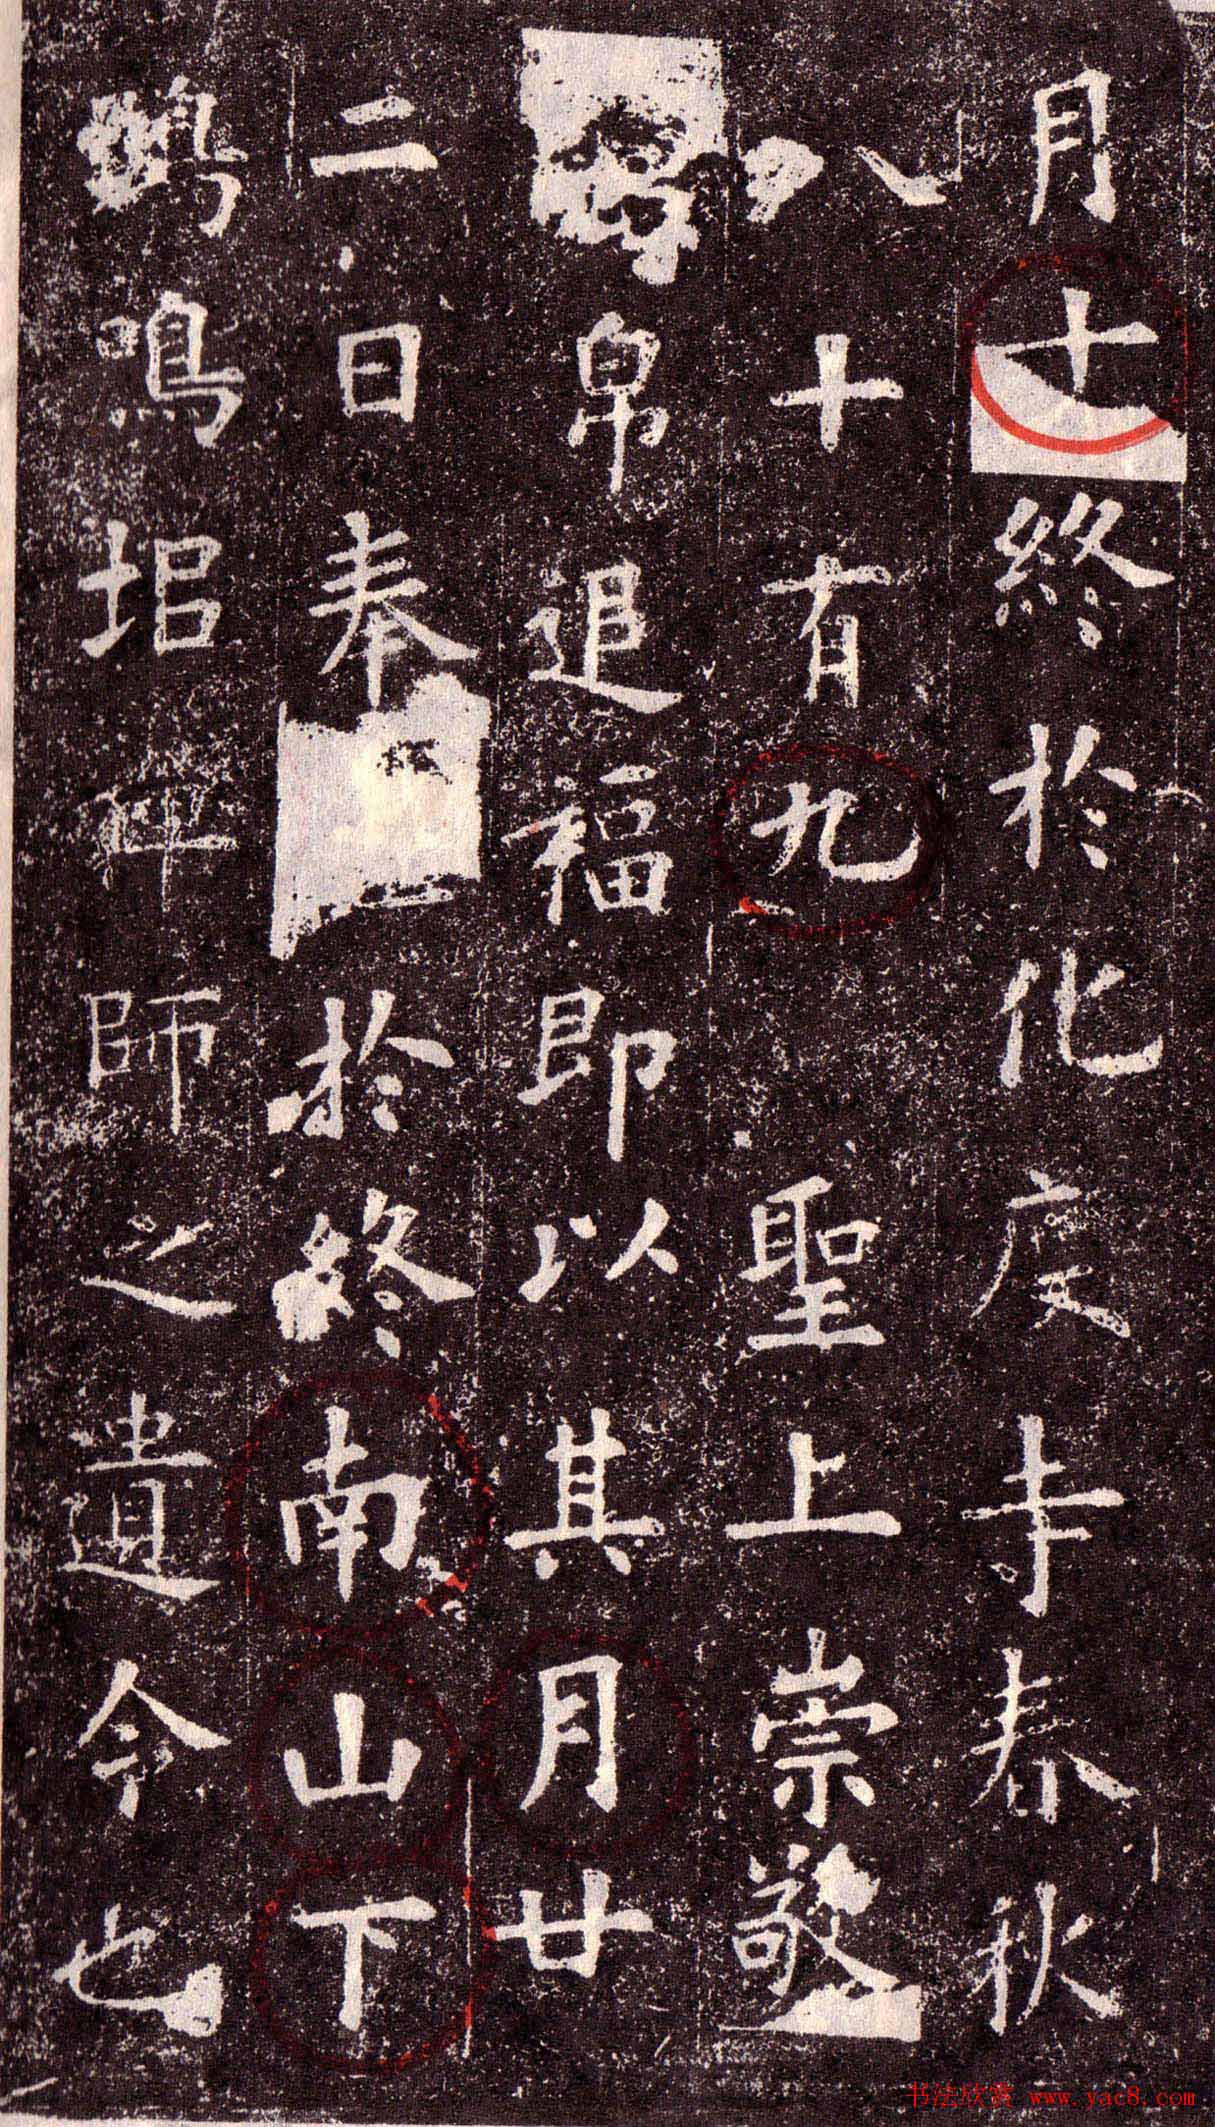 月十終於化度寺春秋
八十有九聖上崇敬
帛追福即以其月廿
二日奉於終南山下
鵄鳴埳禅師之遺令也
书法欣赏 www.yac8.com